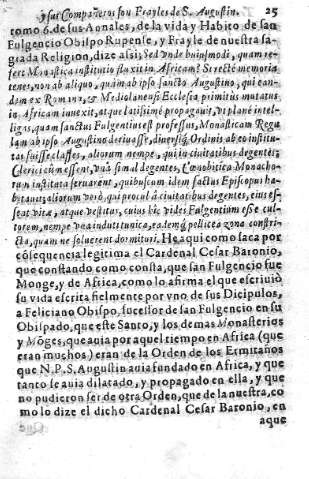 y sus Compañeros son Frayles de S. Augustin. 25
tomo 6. de sus Annales, de la vida y Habito de san
Fulgencio Obispo Rupense, y Frayle de nuestra sa-
grada Religion, dize assi; Sed unde huiusmodi, quam re-
fert Monastica institutio fluxit in Africam? Si recte memoria
tenes, non ab aliquo, quàm ab ipso sancto Augustino, qui ean-
dem ex Romana, & Mediolanensi Ecclesia primitùs mutatus
in Africam inuexit, atque latissimè propagauit, vt planè intel-
ligas, quam sanctus Fulgentius est professus, Monasticam Regu
lam ab ipso Augustino deriuasse, diuersique Ordinis ab eo institu-
tas fuisse classes, aliorum nempe, qui in ciuitatibus degentes
Clerici cum essent, vnà simul degentes, Cœnobitica Monacho-
rum instituta seruarent, quibuscum idem factus Episcopus ha-
bitauit, aliorum verò, qui procul à ciuitatibus degentes, eius es-
set vitæ, atque vestitus, cuius hic vides Fulgentium esse cul-
torem, nempe vt ea indutus tunica, eadem pellicea zona constri-
cta, quam ne solueret dormituri. He aqui como saca por
cõsequencia legitima el Cardenal Cesar Baronio,
que constando como consta, que san Fulgencio fue
Monge, y de Africa, como lo afirma el que escriuiò
su vida escrita fielmente por vno de sus Dicipulos,
a Feliciano Obispo, sucessor de san Fulgencio en su
Obispado, que este Santo, y los demas Monasterios
y Mõges, que auia por aquel tiempo en Africa (que
eran muchos) eran de la Orden de los Ermitaños
que N. P. S. Augustin auia fundado en Africa, y que
tanto se auia dilatado, y propagado en ella, y que
no pudieron ser de otra Orden, que de la nuestra, co
mo lo dize el dicho Cardenal Cesar Baronio, en
aque